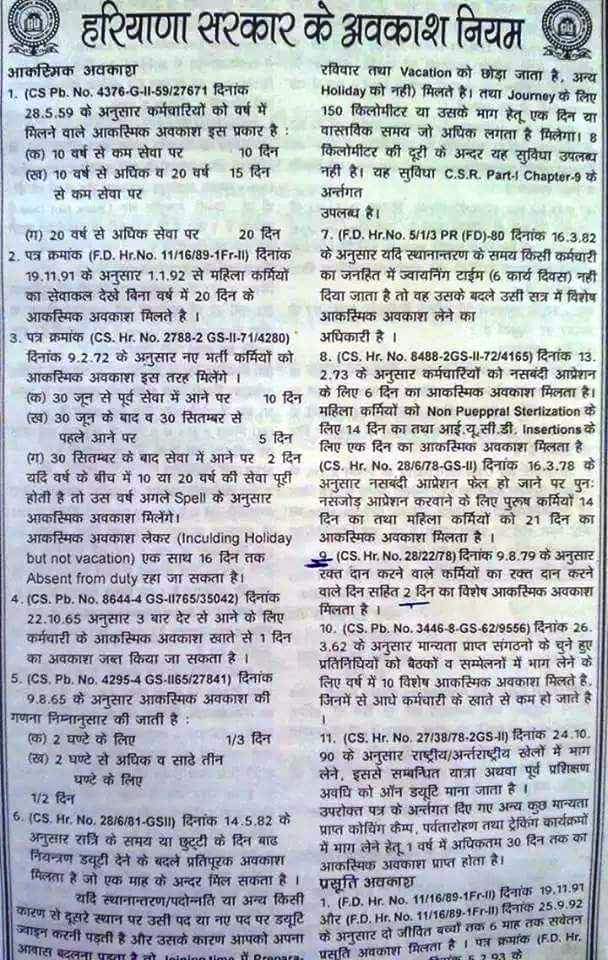 हरियाणा सरकार के अवकाश नियम
आकस्मिक अवकाश
1. (CS Pb. No. 4376-G-II-59/27671 दिनांक
28.5.59 के अनुसार कर्मचारियों को वर्ष में
मिलने वाले आकस्मिक अवकाश इस प्रकार है :
(क) 10 वर्ष से कम सेवा पर 10 दिन
(ख) 10 वर्ष से अधिक व 20 वर्ष 15 दिन
से कम सेवा पर
(ग) 20 वर्ष से अधिक सेवा पर 20 दिन
2. पत्र क्रमांक (F.D. Hr.No. 11/16/89-1Fr-II) दिनांक
19.11.91 के अनुसार 1.1.92 से महिला कर्मियों
का सेवाकल देखे बिना वर्ष में 20 दिन के
आकस्मिक अवकाश मिलते है ।
3. पत्र क्रमांक (CS. Hr. No. 2788-2 GS-II-71/4280)
दिनांक 9.2.72 के अनुसार नए भर्ती कर्मियों को
आकस्मिक अवकाश इस तरह मिलेंगे ।
(क) 30 जून से पूर्व सेवा में आने पर 10 दिन
(ख) 30 जून के बाद व 30 सितम्बर से
पहले आने पर 5 दिन
(ग) 30 सितम्बर के बाद सेवा में आने पर 2 दिन
यदि वर्ष के बीच में 10 या 20 वर्ष की सेवा पूरी
होती है तो उस वर्ष अगले Spell के अनुसार
आकस्मिक अवकाश मिलेंगे।
आकस्मिक अवकाश लेकर (Inculding Holiday
but not vacation) एक साथ 16 दिन तक
Absent from duty रहा जा सकता है।
4. (CS. Pb. No. 8644-4 GS-II765/35042) दिनांक
22.10.65 अनुसार 3 बार देर से आने के लिए
कर्मचारी के आकस्मिक अवकाश खाते से 1 दिन
का अवकाश जब्त किया जा सकता है ।
5. (CS. Pb. No. 4295-4 GS-II65/27841) दिनांक
9.8.65 के अनुसार आकस्मिक अवकाश की
गणना निम्नानुसार की जाती है :
(क) 2 घण्टे के लिए 1/3 दिन
(ख) 2 घण्टे से अधिक व साढे तीन
घण्टे के लिए
1/2 दिन
6. (CS. Hr. No. 28/6/81-GSII) दिनांक 14.5.82 के
अनुसार रात्रि के समय या छुट्टी के दिन बाढ
नियन्त्रण डयूटी देने के बदले प्रतिपूरक अवकाश
मिलता है जो एक माह के अन्दर मिल सकता है ।
यदि स्थानान्तरण/पदोन्नति या अन्य किसी
कारण से दूसरे स्थान पर उसी पद या नए पद पर डयूटि
ज्वाइन करनी पड़ती है और उसके कारण आपको अपना
आवास बदलना पड़ता है तो Joining time में Prepara-
रविवार तथा Vacation को छोड़ा जाता है, अन्य
Holiday को नही) मिलते है। तथा Journey के लिए
150 किलोमीटर या उसके भाग हेतू एक दिन या
वास्तविक समय जो अधिक लगता है मिलेगा। 8
किलोमीटर की दूरी के अन्दर यह सुविघा उपलब्ध
नही है। यह सुविघा C.S.R. Part-I Chapter-9 के
अर्न्तगत
उपलब्ध है।
7. (F.D. Hr.No. 5/1/3 PR (FD)-80 दिनांक 16.3.82
के अनुसार यदि स्थानान्तरण के समय किसी कर्मचारी
का जनहित में ज्वायनिंग टाईम (6 कार्य दिवस) नही
दिया जाता है तो वह उसके बदले उसी सत्र में विशेष
आकस्मिक अवकाश लेने का
अधिकारी है ।
8. (CS. Hr. No. 8488-2GS-II-72/4165) दिनांक 13.
2.73 के अनुसार कर्मचारियों को नसबंदी आप्रेशन
के लिए 6 दिन का आकस्मिक अवकाश मिलता है।
महिला कर्मियों को Non Pueppral Sterlization के
लिए 14 दिन का तथा आई.यू.सी.डी. Insertions के
लिए एक दिन का आकस्मिक अवकाश मिलता है
(CS. Hr. No. 28/6/78-GS-II) दिनांक 16.3.78 के
अनुसार नसबंदी आप्रेशन फेल हो जाने पर पुनः
नसजोड़ आप्रेशन करवाने के लिए पुरूष कर्मियों 14
दिन का तथा महिला कर्मियों को 21 दिन का
आकस्मिक अवकाश मिलता है ।
9. (CS. Hr. No. 28/22/78) दिनांक 9.8.79 के अनुसार
रक्त दान करने वाले कर्मियों का रक्त दान करने
वाले दिन सहित 2 दिन का विशेष आकस्मिक अवकाश
मिलता है ।
10. (CS. Pb. No. 3446-8-GS-62/9556) दिनांक 26.
3.62 के अनुसार मान्यता प्राप्त संगठनों के चुने हुए
प्रतिनिधियों को बैठकों व सम्मेलनों में भाग लेने के
लिए वर्ष में 10 विशेष आकस्मिक अवकाश मिलते है,
जिनमें से आधे कर्मचारी के खाते से कम हो जाते है
।
11. (CS. Hr. No. 27/38/78-2GS-II) दिनांक 24.10.
90 के अनुसार राष्ट्रीय/अर्न्तराष्ट्रीय खेलों में भाग
लेने, इससे सम्बन्धित यात्रा अथवा पूर्व प्रशिक्षण
अवधि को ऑन डयूटि माना जाता है ।
उपरोक्त पत्र के अर्न्तगत दिए गए अन्य कुछ मान्यता
प्राप्त कोचिंग कैम्प, पर्वतारोहण तथा ट्रेकिंग कार्यक्रमों
में भाग लेने हेतू 1 वर्ष में अधिकतम 30 दिन तक का
आकस्मिक अवकाश प्राप्त होता है।
प्रसूति अवकाश
1. (F.D. Hr. No. 11/16/89-1Fr-II) दिनांक 19.11.91
और (F.D. Hr. No. 11/16/89-1Fr-II) दिनांक 25.9.92
के अनुसार दो जीवित बच्चों तक 6 माह तक सवेतन
प्रसूति अवकाश मिलता है । पत्र क्रमांक (F.D. Hr.
5.2.93 के